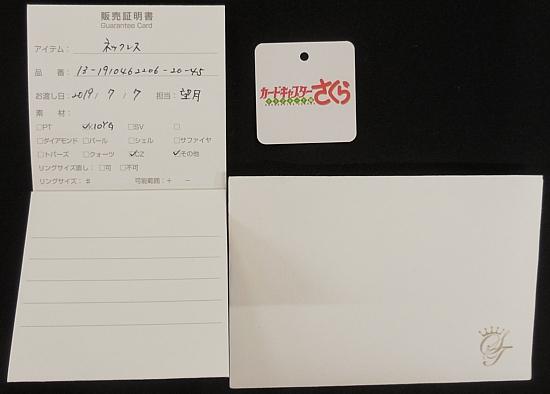 販売証明書
Guarantee Card
アイテム： ネックレス
品 番： 13-1910462206-20-45
お渡し日：2019/7/7 担当：望月
素 材：
□PT ☑K10YG □SV □
□ダイアモンド □パール □シェル □サファイヤ
□トパーズ □クォーツ ☑CZ ☑その他
リングサイズ直し：□可 □不可
リングサイズ：＃ 可能範囲：＋ －
カードキャプター
さくら